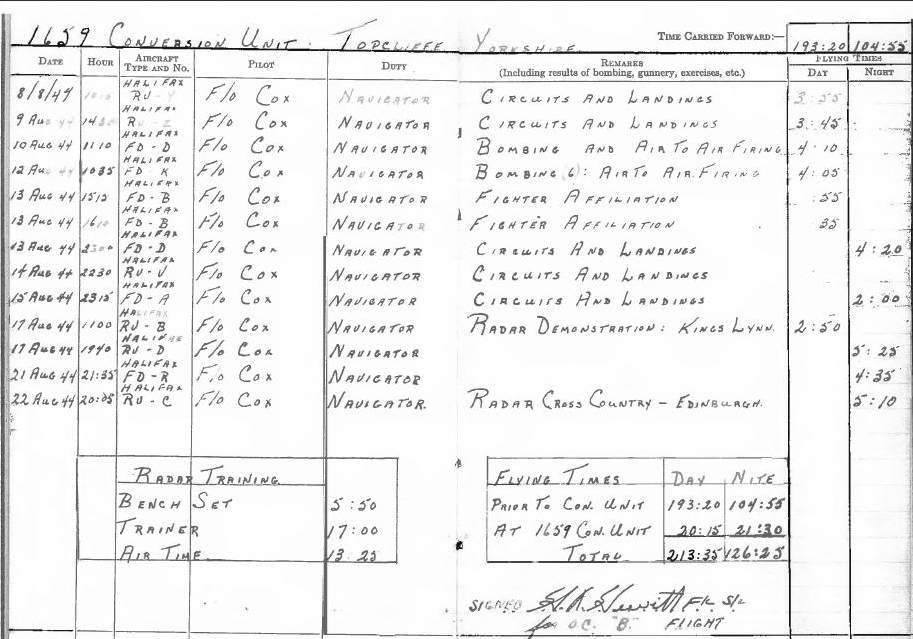 1659 CONVERSION UNIT: TOPCLIFFE YORKSHIRE. TIME CARRIED FORWARD:— 193:20 104:55
DATE HOUR AIRCRAFT TYPE AND NO. PILOT DUTY REMARKS (Including results of bombing, gunnery, exercises, etc.) FLYING TIMES DAY NIGHT
8/8/44 HALIFAX RU- F/o COX NAVIGATOR CIRCUITS AND LANDINGS 3:55
9 AUG 44 HALIFAX RU- F/o COX NAVIGATOR CIRCUITS AND LANDINGS 3:45
10 AUG 44 1110 HALIFAX FD-D F/o COX NAVIGATOR BOMBING AND AIR TO AIR FIRING 4:10
12 AUG 44 1035 HALIFAX FD-K F/o COX NAVIGATOR BOMBING (6): AIR TO AIR FIRING 4:05
13 AUG 44 1515 HALIFAX FD-B F/o COX NAVIGATOR FIGHTER AFFILIATION :55
13 AUG 44 1610 HALIFAX FD-B F/o COX NAVIGATOR FIGHTER AFFILIATION 35
13 AUG 44 2300 HALIFAX FD-D F/o COX NAVIGATOR CIRCUITS AND LANDINGS 4:20
14 AUG 44 2230 HALIFAX RU-U F/o COX NAVIGATOR CIRCUITS AND LANDINGS
15 AUG 44 2315 HALIFAX FD-A F/o COX NAVIGATOR CIRCUITS AND LANDINGS 2:00
17 AUG 44 1100 HALIFAX RU-B F/o COX NAVIGATOR RADAR DEMONSTRATION: KINGS LYNN. 2:50
17 AUG 44 1940 HALIFAX RU-D F/o COX NAVIGATOR 5:25
21 AUG 44 21:35 HALIFAX FD-R F/o COX NAVIGATOR 4:35
22 AUG 44 20:05 HALIFAX RU-C F/o COX NAVIGATOR. RADAR CROSS COUNTRY — EDINBURGH. 5:10
RADAR TRAINING
BENCH SET 5:50
TRAINER 17:00
AIR TIME. 13 25
FLYING TIMES DAY NITE
PRIOR TO CON. UNIT 193:20 104:55
AT 1659 CON. UNIT 20:15 21:30
TOTAL 213:35 126:25
SIGNED
for O.C. "B" FLIGHT